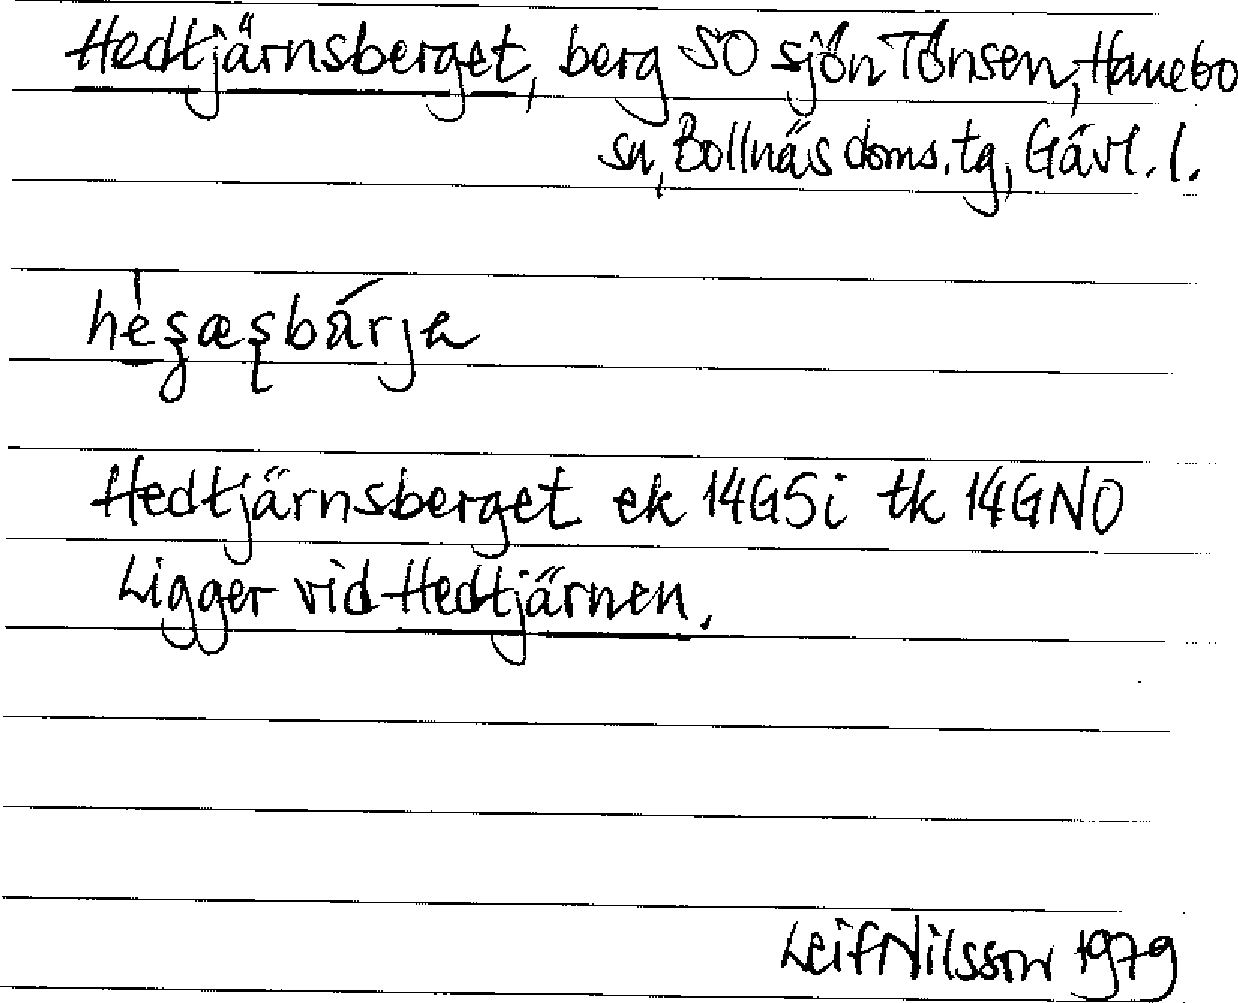 Hedtjärnsberget, berg SO sjön Tönsen, Hanebo
sn, Bollnäs doms. tg, Gävl. l.
Hedtjärnsberget ek 14G5i tk 14GNO
Ligger vid Hedtjärnen.
Leif Nilsson 1979